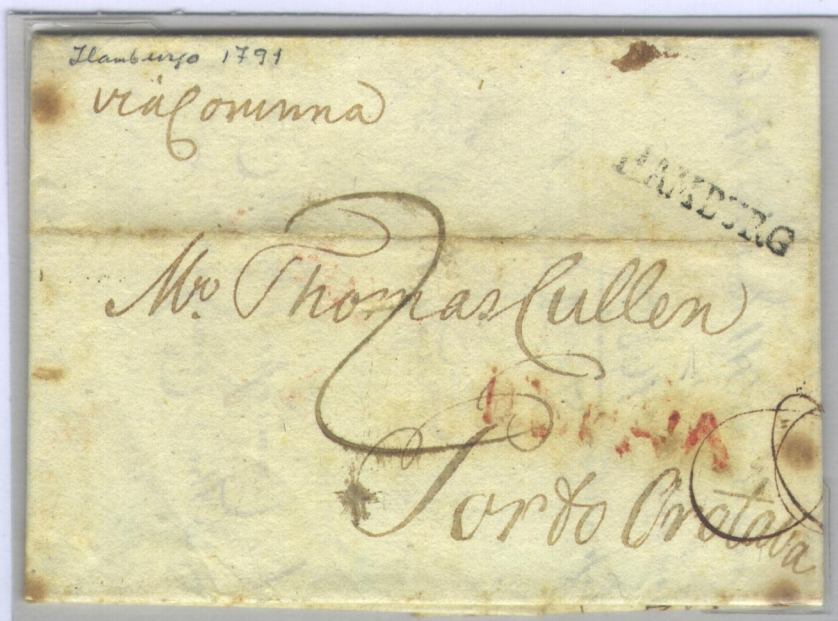 Hamburgo 1791
via Corunna
HAMBURG
Mro. Thomas Cullen
2
Porto Orotava